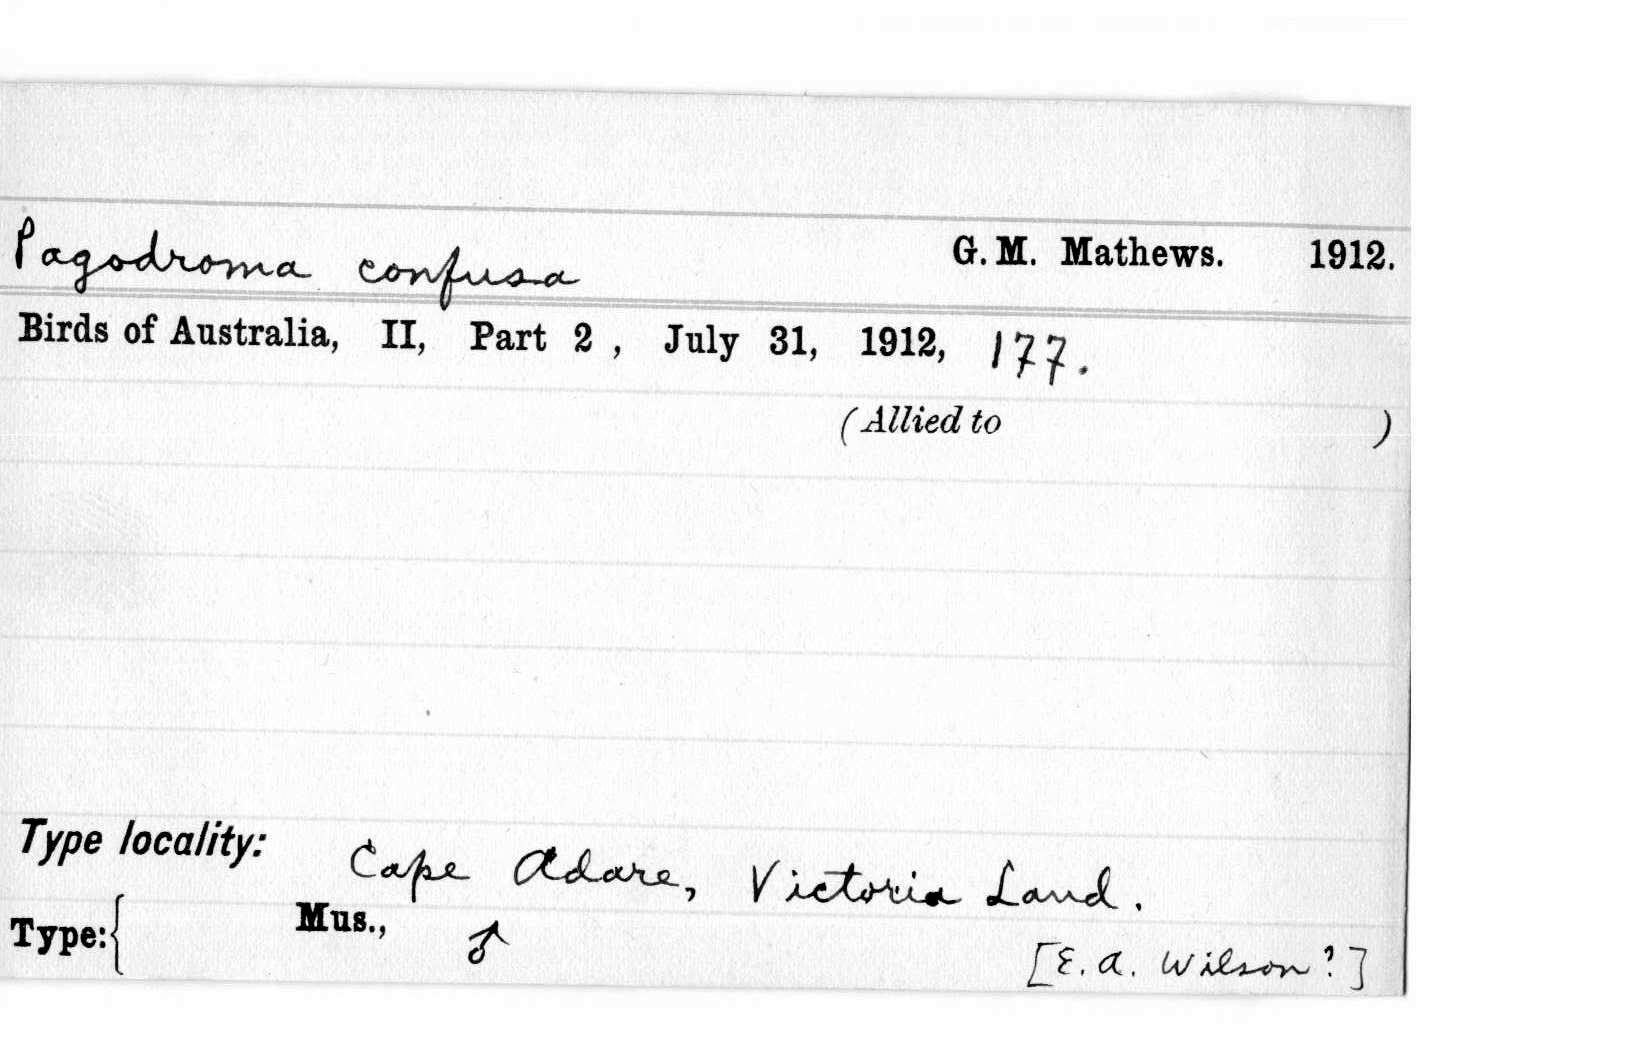 Pagodroma confusa G. M. Mathews. 1912.
Birds of Australia, II, Part 2 , July 31, 1912, 177.
(Allied to )
Type locality: Cape Adare, Victoria Land.
Type:{ Mus., ♂ [E. A. Wilson?]